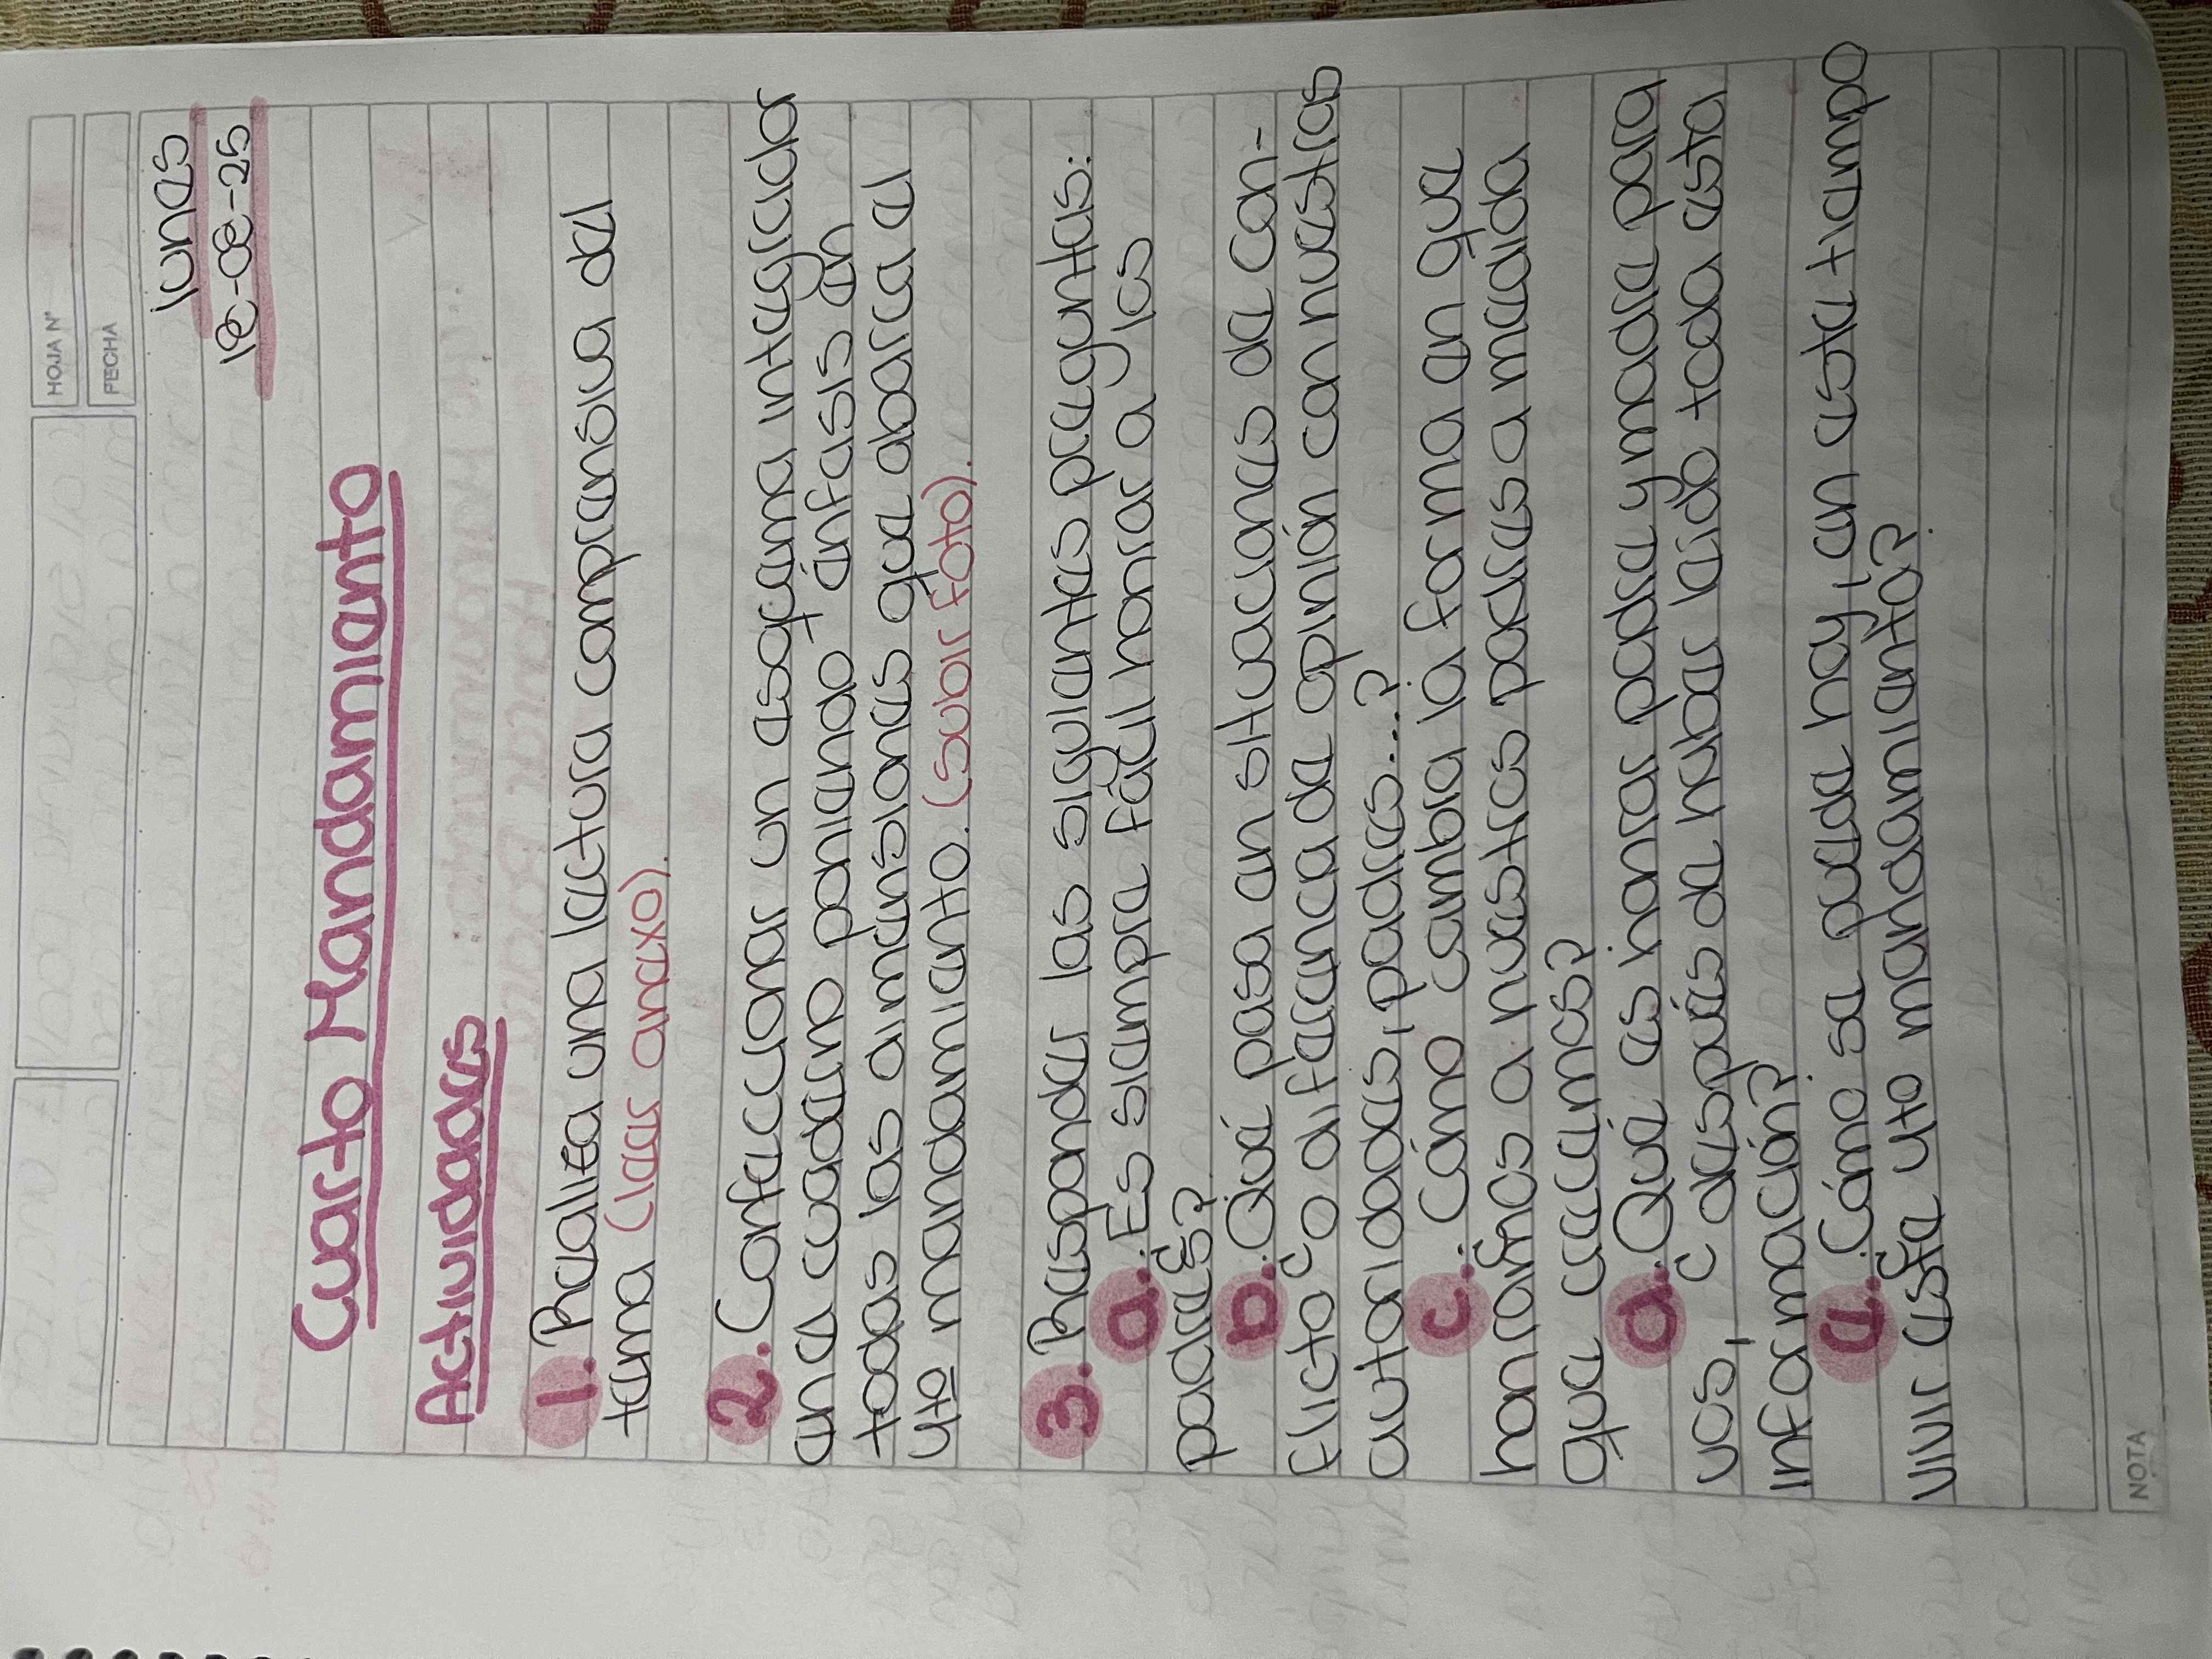 HOJA N°
FECHA
lunes
18-08-25
Cuarto Mandamiento
Actividades
1. Realiza una lectura comprensiva del
tema (leer anexo).
2. Confeccionar un esquema integrador
en el cuaderno poniendo énfasis en
todas las dimensiones que abarca el
4to mandamiento. (subir foto).
3. Responder las siguientes preguntas:
a. Es siempre fácil honrar a los
padres?
b. Qué pasa en situaciones de con-
flicto o diferencia de opinión con nuestras
autoridades, padres...?
c. Cómo cambia la forma en que
honramos a nuestros padres a medida
que crecemos?
d. Qué es honrar padre y madre para
vos, después de haber leído toda esta
información?
e. Cómo se puede hoy, en este tiempo
vivir este 4to mandamiento?
NOTA